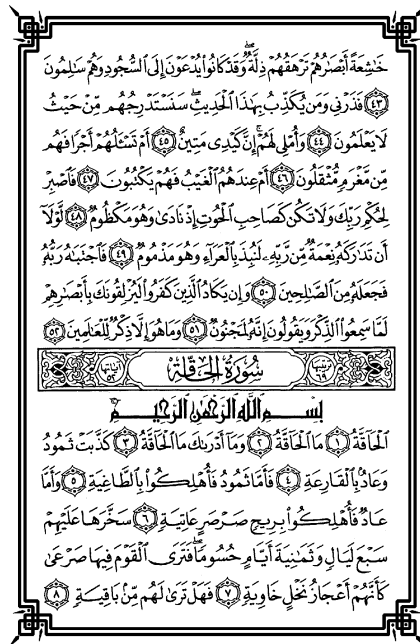 خَٰشِعَةً أَبْصَٰرُهُمْ تَرْهَقُهُمْ ذِلَّةٌۖ وَقَدْ كَانُوا۟ يُدْعَوْنَ إِلَى ٱلسُّجُودِ وَهُمْ سَٰلِمُونَ
﴿٤٣﴾ فَذَرْنِى وَمَن يُكَذِّبُ بِهَٰذَا ٱلْحَدِيثِۖ سَنَسْتَدْرِجُهُم مِّنْ حَيْثُ
لَا يَعْلَمُونَ ﴿٤٤﴾ وَأُمْلِى لَهُمْۚ إِنَّ كَيْدِى مَتِينٌ ﴿٤٥﴾ أَمْ تَسْـَٔلُهُمْ أَجْرًا فَهُم
مِّن مَّغْرَمٍ مُّثْقَلُونَ ﴿٤٦﴾ أَمْ عِندَهُمُ ٱلْغَيْبُ فَهُمْ يَكْتُبُونَ ﴿٤٧﴾ فَٱصْبِرْ
لِحُكْمِ رَبِّكَ وَلَا تَكُن كَصَاحِبِ ٱلْحُوتِ إِذْ نَادَىٰ وَهُوَ مَكْظُومٌ ﴿٤٨﴾ لَّوْلَآ
أَن تَدَٰرَكَهُۥ نِعْمَةٌ مِّن رَّبِّهِۦ لَنُبِذَ بِٱلْعَرَآءِ وَهُوَ مَذْمُومٌ ﴿٤٩﴾ فَٱجْتَبَٰهُ رَبُّهُۥ
فَجَعَلَهُۥ مِنَ ٱلصَّٰلِحِينَ ﴿٥٠﴾ وَإِن يَكَادُ ٱلَّذِينَ كَفَرُوا۟ لَيُزْلِقُونَكَ بِأَبْصَٰرِهِمْ
لَمَّا سَمِعُوا۟ ٱلذِّكْرَ وَيَقُولُونَ إِنَّهُۥ لَمَجْنُونٌ ﴿٥١﴾ وَمَا هُوَ إِلَّا ذِكْرٌ لِّلْعَٰلَمِينَ ﴿٥٢﴾
ترتيبها ٦٩ سُورَةُ ٱلْحَاقَّةِ آياتها ٥٢
بِسْمِ ٱللَّهِ ٱلرَّحْمَٰنِ ٱلرَّحِيمِ
ٱلْحَآقَّةُ ﴿١﴾ مَا ٱلْحَآقَّةُ ﴿٢﴾ وَمَآ أَدْرَىٰكَ مَا ٱلْحَآقَّةُ ﴿٣﴾ كَذَّبَتْ ثَمُودُ
وَعَادٌۢ بِٱلْقَارِعَةِ ﴿٤﴾ فَأَمَّا ثَمُودُ فَأُهْلِكُوا۟ بِٱلطَّاغِيَةِ ﴿٥﴾ وَأَمَّا
عَادٌ فَأُهْلِكُوا۟ بِرِيحٍ صَرْصَرٍ عَاتِيَةٍ ﴿٦﴾ سَخَّرَهَا عَلَيْهِمْ
سَبْعَ لَيَالٍ وَثَمَٰنِيَةَ أَيَّامٍ حُسُومًاۖ فَتَرَى ٱلْقَوْمَ فِيهَا صَرْعَىٰ
كَأَنَّهُمْ أَعْجَازُ نَخْلٍ خَاوِيَةٍ ﴿٧﴾ فَهَلْ تَرَىٰ لَهُم مِّنۢ بَاقِيَةٍ ﴿٨﴾